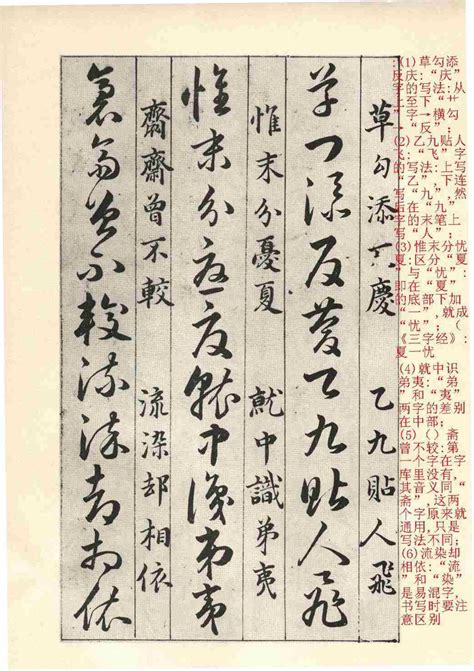 :(1)草勾添
反庆:“庆”
字的写法:从
上至下“艹
”字→横勾
→“反”;
(2)乙九贴人
飞:“飞”字
的写法:上写
“乙”,下连
写“九”,然
后在“九”
字的末笔上
写“人”;
(3)惟末分忧
夏:区分“夏
”与“忧”:
即在“夏”
的底部下加
“一”,就成
“忧”;(
《三字经》:
夏一忧
(4)就中识
弟夷:“弟
”和“夷”
两字的差别
在中部;
(5)()斋
曾不较:第
一个字在字
库里没有,
其音义同“
斋”,这两
个字原来就
通用,只是
写法不同;
(6)流染却
相依:“流
”和“染”
是易混字,
书写时要注
意区别
草勾添慶 乙九貼人飛
草勾添反慶乙九貼人飛
惟末分憂夏 就中識弟夷
惟末分憂夏就中識弟夷
齋齋曾不較 流染却相依
齋齋曾不較流染却相依